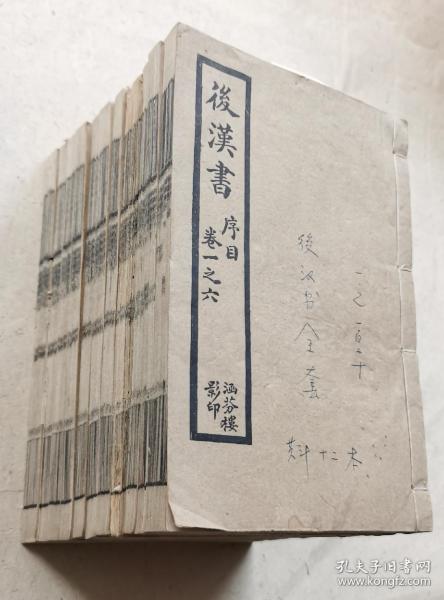 後漢書
序目
卷一之六
涵芬樓
影印
一之一百二十
後汉书全套
共十二本
孔夫子旧书网